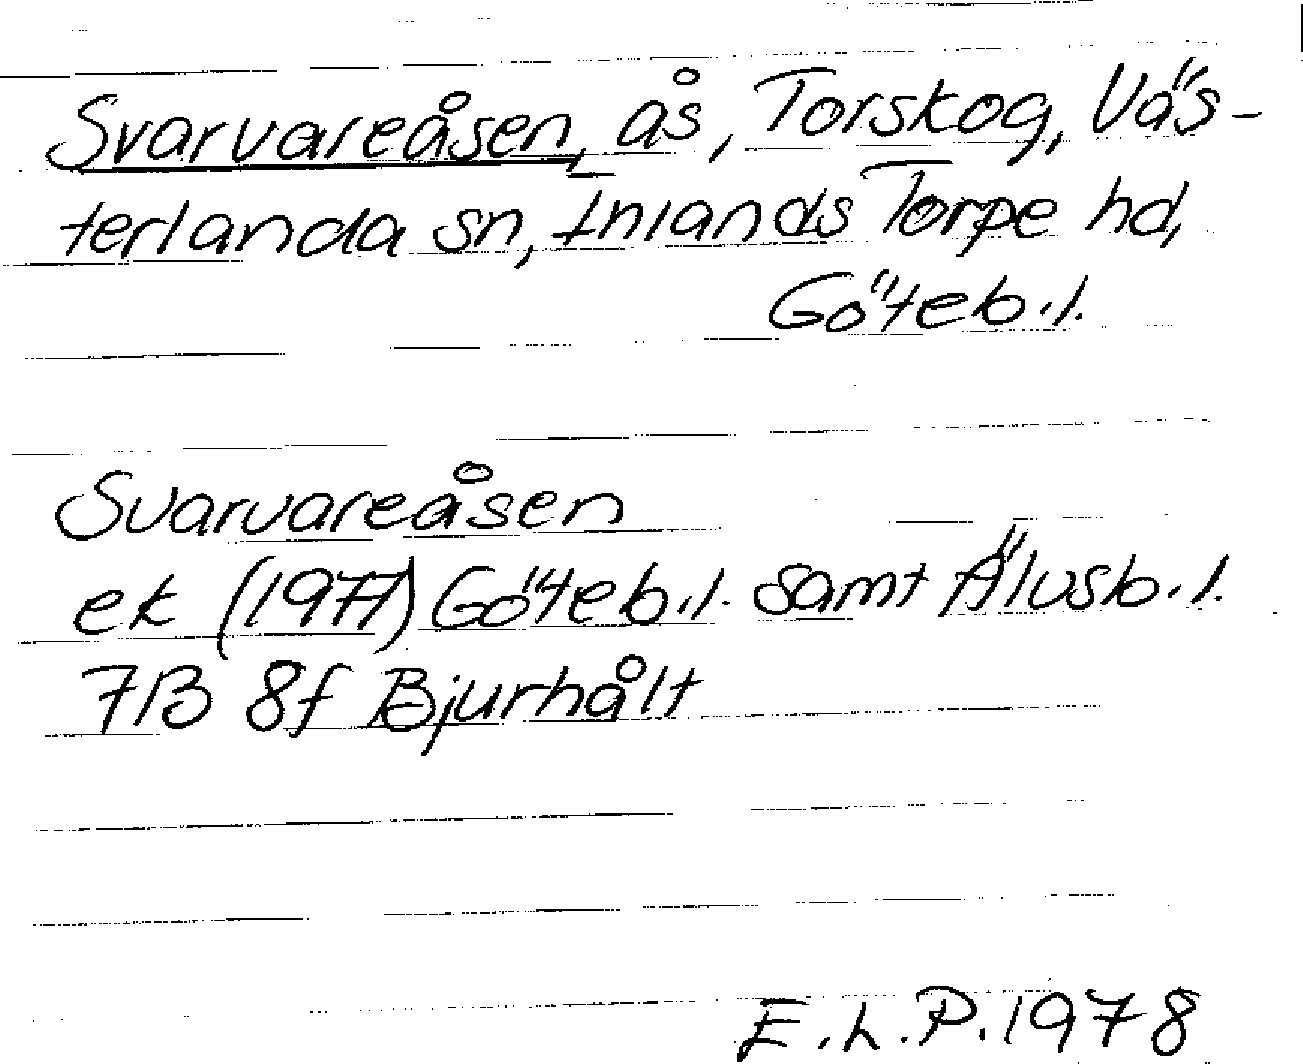 Svarvareåsen, ås, Torskog, Väs-
terlanda sn, Inlands Torpe hd,
Göteb.l.
Svarvareåsen
ek (1977) Göteb.l. samt Älvsb.l.
7B 8f Bjurhålt
E.L.P. 1978